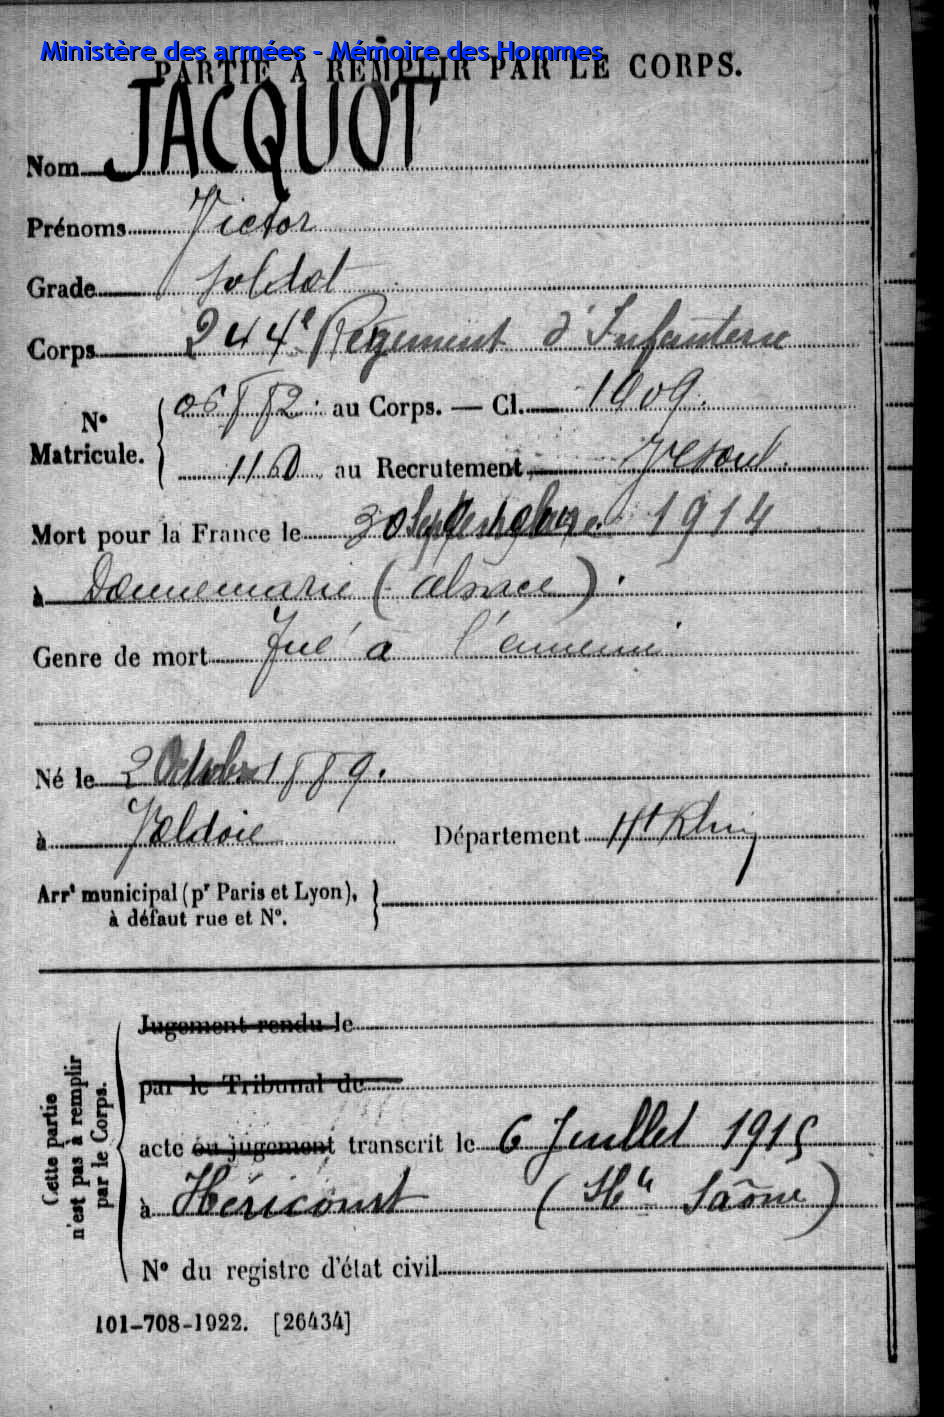 Ministère des armées - Mémoire des Hommes
PARTIE À REMPLIR PAR LE CORPS.
Nom JACQUOT
Prénoms Victor
Grade Soldat
Corps 244e Régiment d'Infanterie
N° Matricule. { 06882 au Corps. — Cl. 1909.
1160 au Recrutement Vesoul.
Mort pour la France le 30 1914
à Dannemarie (Alsace).
Genre de mort Tué à l'ennemi
Né le 2 Octobre 1889.
à Valdoie Département Ht Rhin
Arrt municipal (pr Paris et Lyon), à défaut rue et N°. }
Cette partie n'est pas à remplir par le Corps.
Jugement rendu le
par le Tribunal de
acte ou jugement transcrit le 6 Juillet 1915
à Héricourt (Hte Saône)
N° du registre d'état civil
101-708-1922. [26434]